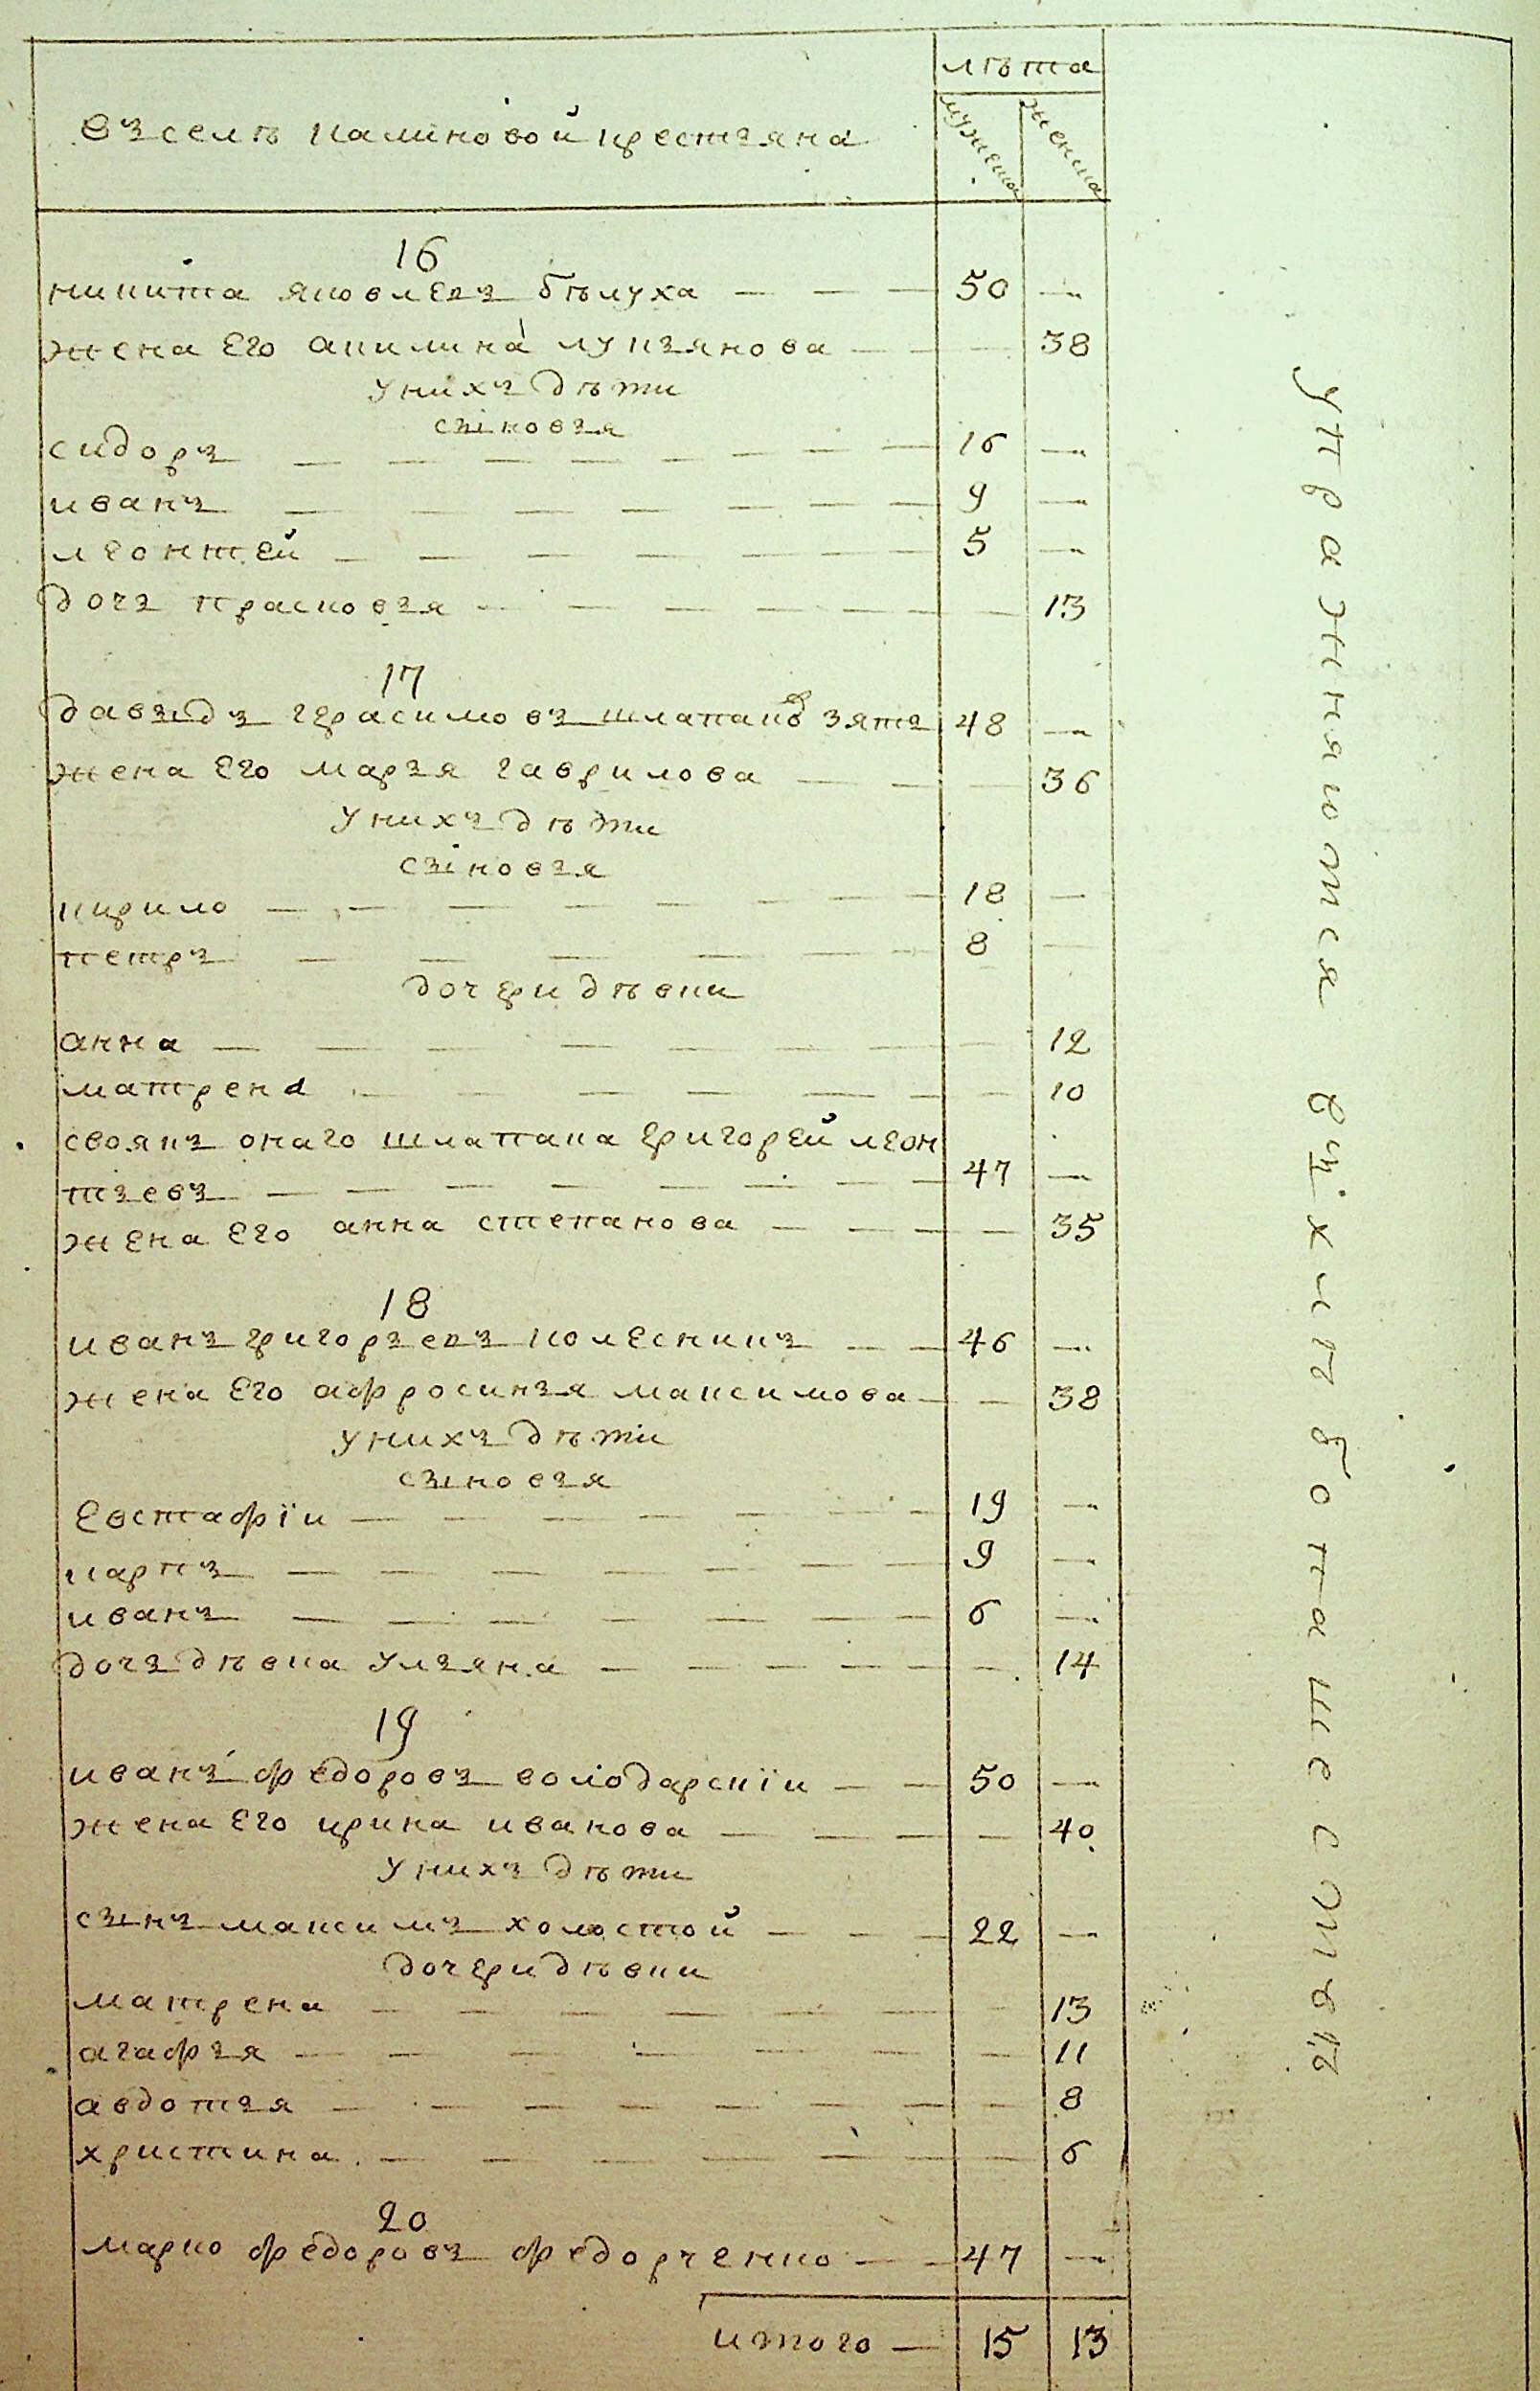 лѣта
въ селѣ калиновой крестьяна
мужеска
женска
16
никита яковлевъ бѣлуха — — — 50 —
жена его акилина лукьянова — — — 38
у нихъ дѣти
сыновья
сидоръ — — — — — — — 16 —
иванъ — — — — — — 9 —
леонтей — — — — — — 5 —
дочь прасковья — — — — — — 13
17
давыдъ герасимовъ шлапаковъ зять 48 —
жена его марья гаврилова — — — 36
у нихъ дѣти
сыновья
кирило — — — — — — — 18 —
петръ — — — — — — 8 —
дочери дѣвки
анна — — — — — — — — 12
матрена — — — — — — — 10
своякъ онаго шлапака григорей леон
тьевъ — — — — — — — 47 —
жена его анна степанова — — — — 35
18
иванъ григорьевъ колесникъ — — 46 —
жена его афросинья максимова — — 38
у нихъ дѣти
сыновья
евстафїи — — — — — — 19 —
карпъ — — — — — — 9 —
иванъ — — — — — — — 6 —
дочь дѣвка ульяна — — — — — 14
19
иванъ федоровъ володарскїи — — 50 —
жена его ирина иванова — — — — 40
у нихъ дѣти
сынъ максимъ холостой — — — 22 —
дочери дѣвки
матрена — — — — — — — 13
агафья — — — — — — — — 11
авдотья — — — — — — — — 8
христина — — — — — — — 6
20
марко федоровъ федорченко — — 47 —
итого — 15 13
упражняются въ хлѣбопашествѣ